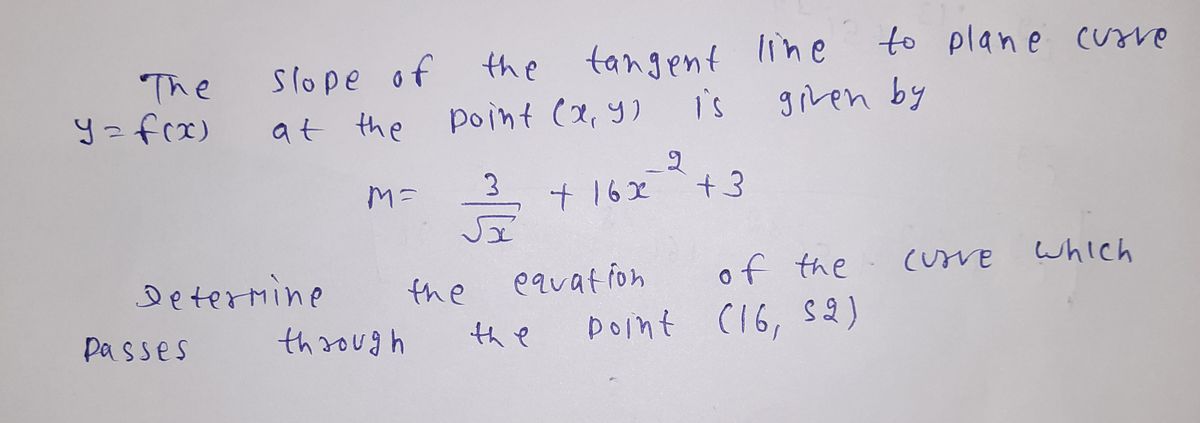 The slope of the tangent line to plane curve
y = f(x) at the point (x, y) is given by
m = 3/√x + 16x⁻² + 3
Determine the equation of the curve which
passes through the point (16, 52)